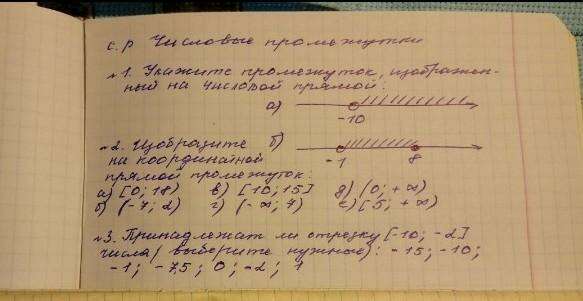 с.р Числовые промежутки
№1. Укажите промежуток, изображен-
ный на числовой прямой:
а)
-10
№2. Изобразите б)
на координатной -1 8
прямой промежуток:
а) [0; 18) в) [10; 15] д) (0; +∞)
б) (-7; 2) г) (-∞; 7) е) [5; +∞)
№3. Принадлежат ли отрезку [-10; -2]
числа (выберите нужное): -15; -10;
-1; -7,5; 0; -2; 1